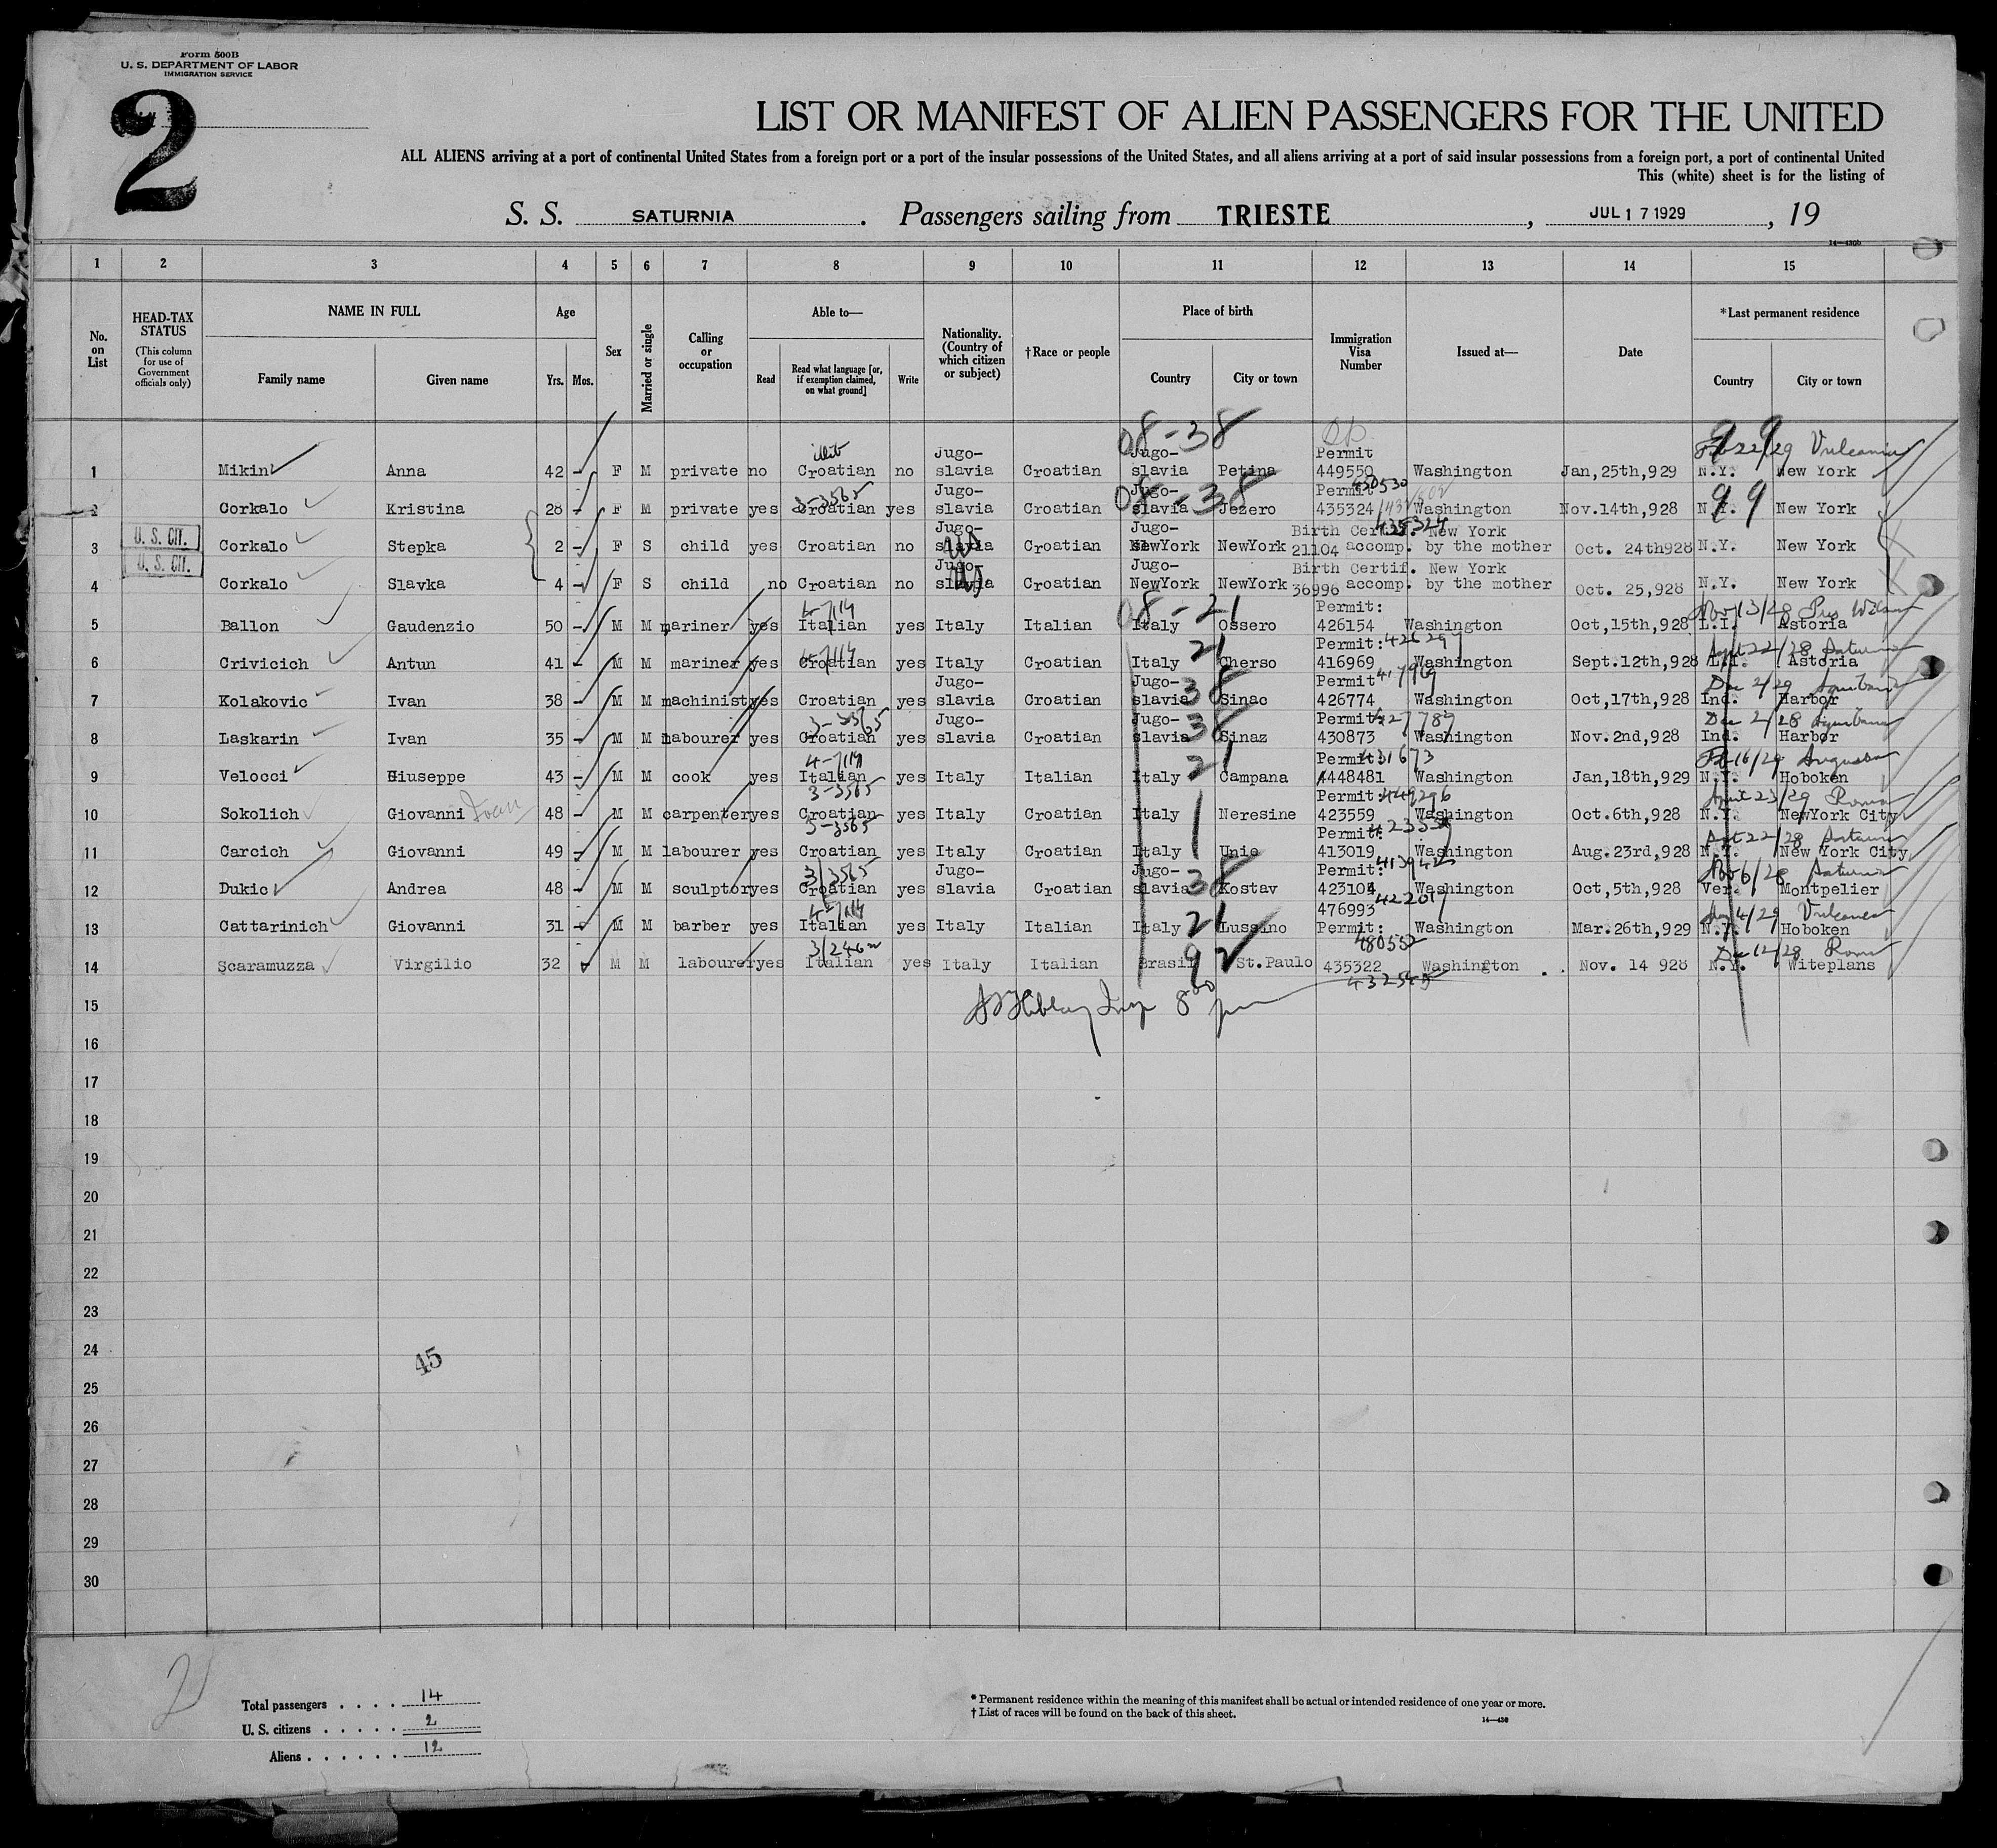 Form 500B
U. S. DEPARTMENT OF LABOR
IMMIGRATION SERVICE
2
LIST OR MANIFEST OF ALIEN PASSENGERS FOR THE UNITED
ALL ALIENS arriving at a port of continental United States from a foreign port or a port of the insular possessions of the United States, and all aliens arriving at a port of said insular possessions from a foreign port, a port of continental United
This (white) sheet is for the listing of
S. S. SATURNIA. Passengers sailing from TRIESTE, JUL 17 1929, 19
14—430b
1 2 3 4 5 6 7 8 9 10 11 12 13 14 15
No. on List
HEAD-TAX STATUS (This column for use of Government officials only)
NAME IN FULL Family name Given name
Age Yrs. Mos.
Sex
Married or single
Calling or occupation
Able to— Read Read what language [or, if exemption claimed, on what ground] Write
Nationality. (Country of which citizen or subject)
†Race or people
Place of birth Country City or town
Immigration Visa Number
Issued at—
Date
*Last permanent residence Country City or town
08-38 99 Feb 22/29 Vulcania
illit Jugo- Jugo- Permit
1 Mikin Anna 42 - F M private no Croatian no slavia Croatian slavia Petina 449550 Washington Jan,25th,929 N.Y. New York
3-3565 Jugo- 08-38 Jugo- Permit 450530 99
2 Corkalo Kristina 28 - F M private yes Croatian yes slavia Croatian slavia Jezero 435324 Washington Nov.14th,928 N.Y. New York
U. S. CIT. Jugo- US Jugo- Birth Certif. New York 435324
3 Corkalo Stepka 2 - F S child yes Croatian no slavia Croatian NewYork NewYork 21104 accomp. by the mother Oct. 24th928 N.Y. New York
U. S. CIT. Jugo- US Jugo- Birth Certif. New York
4 Corkalo Slavka 4 - F S child no Croatian no slavia Croatian NewYork NewYork 36996 accomp. by the mother Oct. 25,928 N.Y. New York
4-7114 08-21 Permit: Nov 13/28 Pres Wilson
5 Ballon Gaudenzio 50 - M M mariner yes Italian yes Italy Italian Italy Ossero 426154 Washington Oct,15th,928 L.I. Astoria
4-7114 21 Permit: 426297 Sept 22/28 Saturnia
6 Crivicich Antun 41 - M M mariner yes Croatian yes Italy Croatian Italy Cherso 416969 Washington Sept.12th,928 L.I. Astoria
Jugo- Jugo- 38 Permit 417969
7 Kolakovic Ivan 38 - M M machinist yes Croatian yes slavia Croatian slavia Sinac 426774 Washington Oct,17th,928 Ind. Harbor
3-3565 Jugo- Jugo- 38 Permit: 427789 Dec 2/28
8 Laskarin Ivan 35 - M M labourer yes Croatian yes slavia Croatian slavia Sinaz 430873 Washington Nov.2nd,928 Ind. Harbor
4-7114 21 Permit 431673 Feb 16/29 Augustus
9 Velocci Giuseppe 43 - M M cook yes Italian yes Italy Italian Italy Campana 4448481 Washington Jan,18th,929 N.Y. Hoboken
3-3565 Permit: 449296 23/29 Roma
10 Sokolich Giovanni Ivan 48 - M M carpenter yes Croatian yes Italy Croatian Italy Neresine 423559 Washington Oct.6th,928 N.Y. NewYork City
3-3565 Permit: 22/28 Saturnia
11 Carcich Giovanni 49 - M M labourer yes Croatian yes Italy Croatian Italy Unie 413019 Washington Aug.23rd,928 N.Y. New York City
3/3565 Jugo- Jugo- 38 Permit: Nov 6/28 Saturnia
12 Dukic Andrea 48 - M M sculptor yes Croatian yes slavia Croatian slavia Kostav 423104 Washington Oct,5th,928 Ver. Montpelier
4-7114 21 476993 422017 4/29 Vulcania
13 Cattarinich Giovanni 31 - M M barber yes Italian yes Italy Italian Italy Lussino Permit: Washington Mar.26th,929 N.Y. Hoboken
92 480552 Dec 12/28 Roma
14 Scaramuzza Virgilio 32 M M labourer yes Italian yes Italy Italian Brasil St.Paulo 435322 Washington Nov. 14 928 N.Y. Witeplans
15
16
17
18
19
20
21
22
23
24
45
25
26
27
28
29
30
2
Total passengers . . . . 14
U. S. citizens . . . . . 2
Aliens . . . . . . 12
* Permanent residence within the meaning of this manifest shall be actual or intended residence of one year or more.
† List of races will be found on the back of this sheet.
14—430